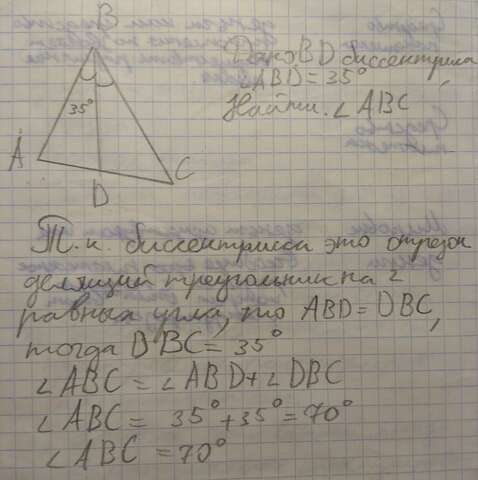 B
Дано BD биссектриса,
∠ABD = 35°
Найти: ∠ABC
35°
A
C
D
Т.к. биссектриса это отрезок
делящий треугольник на 2
равных угла, то ABD = DBC,
тогда DBC = 35°
∠ABC = ∠ABD + ∠DBC
∠ABC = 35° + 35° = 70°
∠ABC = 70°